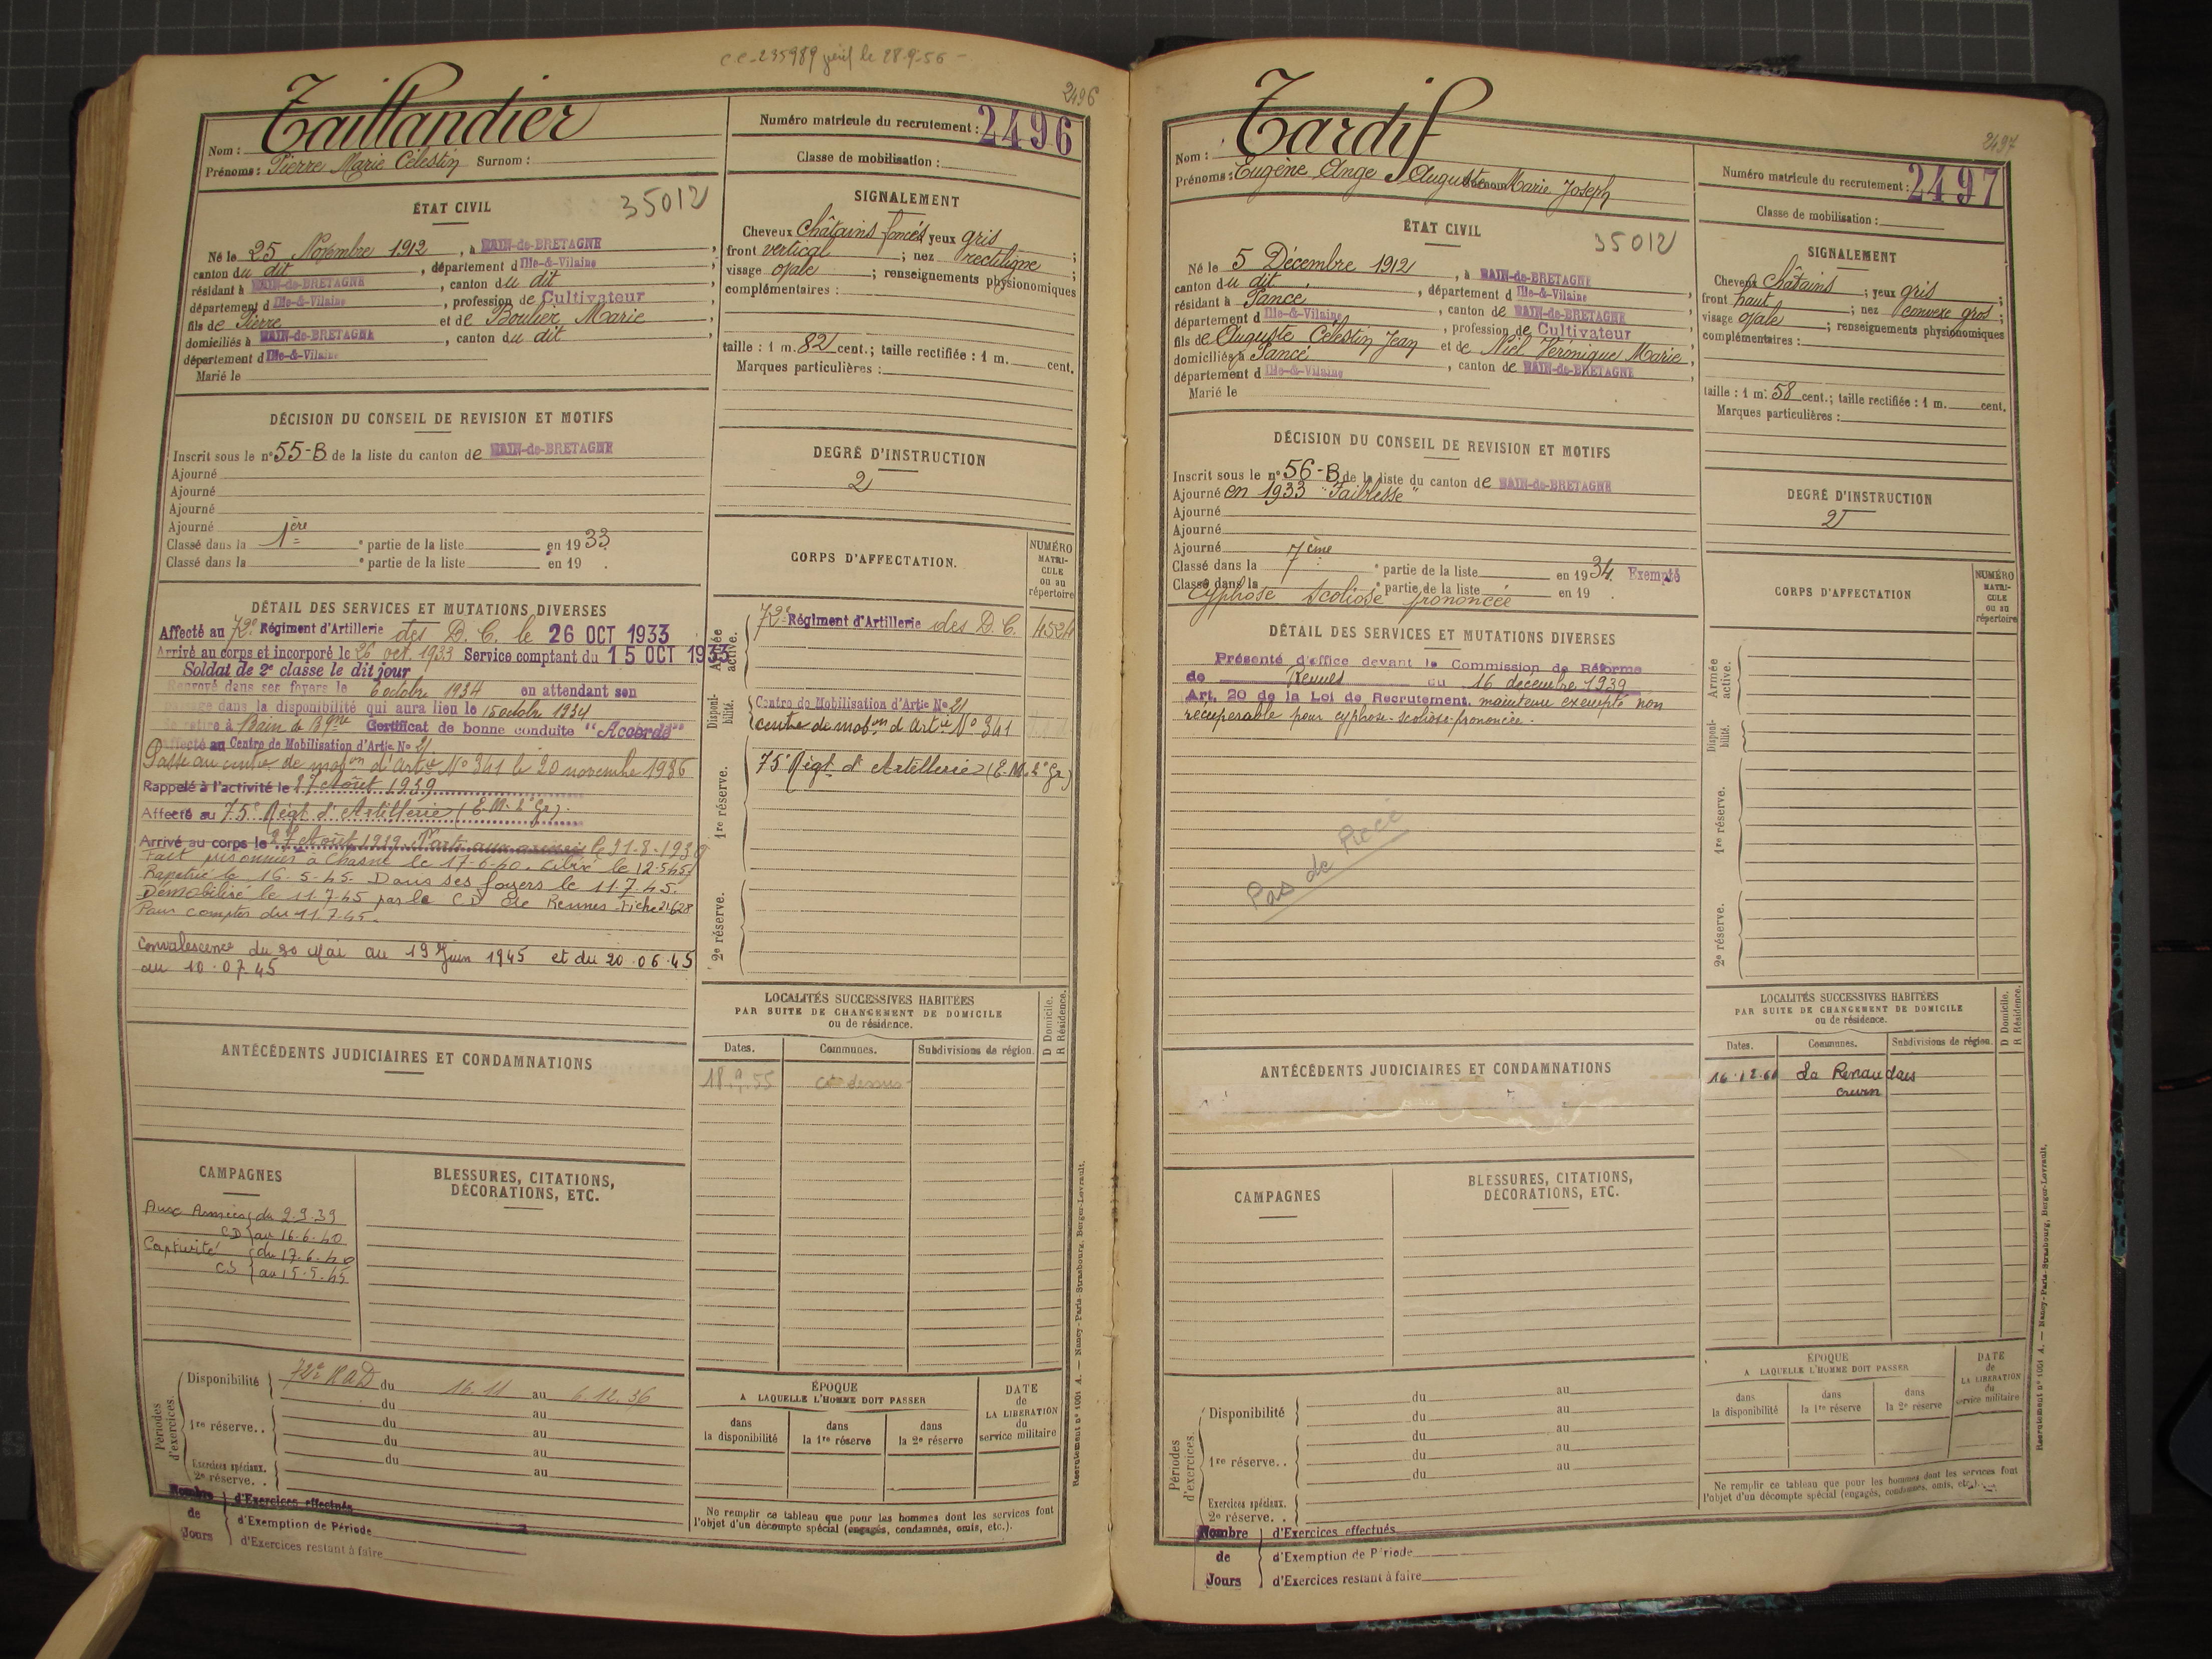 c.c. 235989 le 28.9.56 -
2496
Nom : Taillandier
Prénoms : Pierre Marie Célestin Surnom :
Numéro matricule du recrutement : 2496
Classe de mobilisation :
ÉTAT CIVIL
35012
Né le 25 Novembre 1912, à BAIN-de-BRETAGNE,
canton du dit, département d Ille-&-Vilaine,
résidant à BAIN-de-BRETAGNE, canton du dit
département d Ille-&-Vilaine, profession de Cultivateur
fils de Pierre et de Boulier Marie
domiciliés à BAIN-de-BRETAGNE, canton du dit,
département d Ille-&-Vilaine
Marié le
SIGNALEMENT
Cheveux Châtains foncés yeux gris ;
front vertical ; nez rectiligne ;
visage ovale ; renseignements physionomiques
complémentaires :
taille : 1 m. 82 cent. ; taille rectifiée : 1 m. cent.
Marques particulières :
DÉCISION DU CONSEIL DE REVISION ET MOTIFS
Inscrit sous le n° 55-B de la liste du canton de BAIN-de-BRETAGNE
Ajourné
Ajourné
Ajourné
Ajourné
Classé dans la 1ère e partie de la liste en 1933
Classé dans la e partie de la liste en 19 .
DEGRÉ D'INSTRUCTION
2
DÉTAIL DES SERVICES ET MUTATIONS DIVERSES
Affecté au 72e Régiment d'Artillerie des D. C. le 26 OCT 1933
Arrivé au corps et incorporé le 26 oct. 1933 Service comptant du 15 OCT 1933
Soldat de 2e classe le dit jour
Renvoyé dans ses foyers le 6 octobre 1934 en attendant son
passage dans la disponibilité qui aura lieu le 15 octobre 1934
Se retire à Bain de Bgne Certificat de bonne conduite "Accordé"
Affecté au Centre de Mobilisation d'Artie No 21
Passé au centre de mobon d'artie No 341 le 20 novembre 1936
Rappelé à l'activité le 27 Août 1939
Affecté au 75e Régt d'Artillerie (E.M. 2e Gr).
Arrivé au corps le 27 Août 1939. Parti aux armées le 31-8-1939
Fait prisonnier à Chasne le 17-6-40. Libéré le 12-5-45
Rapatrié le 16-5-45. Dans ses foyers le 11.7.45.
Démobilisé le 11.7.45 par le C D de Rennes - Fiche 21628
Pour compter du 11.7.45.
Convalescence du 20 Mai au 19 Juin 1945 et du 20.06.45
au 10.07.45
CORPS D'AFFECTATION.
NUMÉRO MATRICULE ou au répertoire
Armée active.
72e Régiment d'Artillerie des D. C. 4524
Disponibilité.
Centre de Mobilisation d'Artie No 21
centre de mobon d'Artie No 341
1re réserve.
75e Régt d'Artillerie (E.M. 2e Gr)
2e réserve.
LOCALITÉS SUCCESSIVES HABITÉES
PAR SUITE DE CHANGEMENT DE DOMICILE
ou de résidence.
D Domicile.
R Résidence.
Dates. Communes. Subdivisions de région.
18.9.55 Ci dessus
ANTÉCÉDENTS JUDICIAIRES ET CONDAMNATIONS
CAMPAGNES
Aux Armées du 2.9.39
CD au 16-6-40
Captivité du 17.6.40
CS au 15-5-45
BLESSURES, CITATIONS,
DÉCORATIONS, ETC.
Périodes d'exercices.
Disponibilité 72e RAD du 16.11 au 6.12.36
du au
1re réserve. . du au
du au
du au
Exercices spéciaux. au
2e réserve. .
Nombre d'Exercices effectués
de d'Exemption de Période
Jours d'Exercices restant à faire
ÉPOQUE
A LAQUELLE L'HOMME DOIT PASSER
DATE de LA LIBÉRATION du service militaire
dans la disponibilité
dans la 1re réserve
dans la 2e réserve
Ne remplir ce tableau que pour les hommes dont les services font
l'objet d'un décompte spécial (engagés, condamnés, omis, etc.).
Recrutement n° 1001 A. — Nancy-Paris-Strasbourg, Berger-Levrault.
2497
Nom : Tardif
Prénoms : Eugène Ange Auguste Marie Joseph
Numéro matricule du recrutement : 2497
Classe de mobilisation :
ÉTAT CIVIL
35012
Né le 5 Décembre 1912, à BAIN-de-BRETAGNE
canton du dit, département d Ille-&-Vilaine,
résidant à Pancé, canton de BAIN-de-BRETAGNE,
département d Ille-&-Vilaine, profession de Cultivateur
fils de Auguste Célestin Jean et de Niel Véronique Marie,
domiciliés à Pancé, canton de BAIN-de-BRETAGNE,
département d Ille-&-Vilaine
Marié le
SIGNALEMENT
Cheveux Châtains ; yeux gris ;
front haut ; nez convexe gros ;
visage ovale ; renseignements physionomiques
complémentaires :
taille : 1 m. 58 cent. ; taille rectifiée : 1 m. cent.
Marques particulières :
DÉCISION DU CONSEIL DE REVISION ET MOTIFS
Inscrit sous le n° 56-B de la liste du canton de BAIN-de-BRETAGNE
Ajourné en 1933 "Faiblesse"
Ajourné
Ajourné
Ajourné
Classé dans la 7ème e partie de la liste en 1934. Exempté
Classé dans la e partie de la liste en 19 .
Cyphose scoliose prononcée
DEGRÉ D'INSTRUCTION
2
DÉTAIL DES SERVICES ET MUTATIONS DIVERSES
Présenté d'office devant la Commission de Réforme
de Rennes du 16 décembre 1939
Art. 20 de la Loi de Recrutement. maintenu exempté non
récupérable pour cyphose-scoliose-prononcée.
Pas de Pièce
CORPS D'AFFECTATION
NUMÉRO MATRICULE ou au répertoire
Armée active.
Disponibilité.
1re réserve.
2e réserve.
LOCALITÉS SUCCESSIVES HABITÉES
PAR SUITE DE CHANGEMENT DE DOMICILE
ou de résidence.
D Domicile.
R Résidence.
Dates. Communes. Subdivisions de région.
16.12.60 La Renaudais
Crevin
ANTÉCÉDENTS JUDICIAIRES ET CONDAMNATIONS
CAMPAGNES
BLESSURES, CITATIONS,
DÉCORATIONS, ETC.
Périodes d'exercices.
Disponibilité du au
du au
1re réserve. . du au
du au
du au
Exercices spéciaux.
2e réserve. .
Nombre d'Exercices effectués
de d'Exemption de Période
Jours d'Exercices restant à faire
ÉPOQUE
A LAQUELLE L'HOMME DOIT PASSER
DATE de LA LIBÉRATION du service militaire
dans la disponibilité
dans la 1re réserve
dans la 2e réserve
Ne remplir ce tableau que pour les hommes dont les services font
l'objet d'un décompte spécial (engagés, condamnés, omis, etc.).
Recrutement n° 1001 A. — Nancy-Paris-Strasbourg, Berger-Levrault.